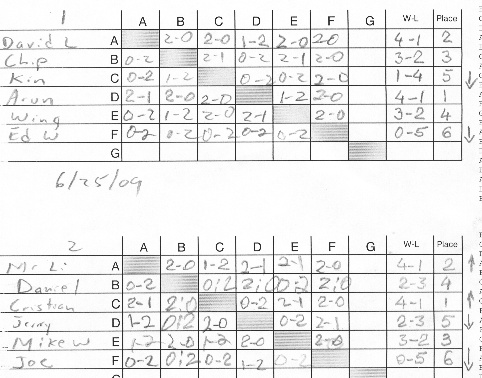 1
A B C D E F G W-L Place
David L A 2-0 2-0 1-2 2-0 2-0 4-1 2
Chip B 0-2 2-1 0-2 2-1 2-0 3-2 3
Kin C 0-2 1-2 0-2 0-2 2-0 1-4 5 ↓
Arun D 2-1 2-0 2-0 1-2 2-0 4-1 1
Wing E 0-2 1-2 2-0 2-1 2-0 3-2 4
Ed W F 0-2 0-2 0-2 0-2 0-2 0-5 6 ↓
G
6/25/09
2
A B C D E F G W-L Place
Mr Li A 2-0 1-2 2-1 2-1 2-0 4-1 2 ↑
Daniel B 0-2 0:2 2:0 0:2 2:0 2-3 4
Cristian C 2-1 2:0 0-2 2-1 2-0 4-1 1 ↑
D 1-2 0:2 2-0 0-2 2-1 2-3 5 ↓
Mike W E 1-2 2-0 1-2 2-0 2-0 3-2 3
Joe F 0-2 0:2 0-2 1-2 0-2 0-5 6 ↓